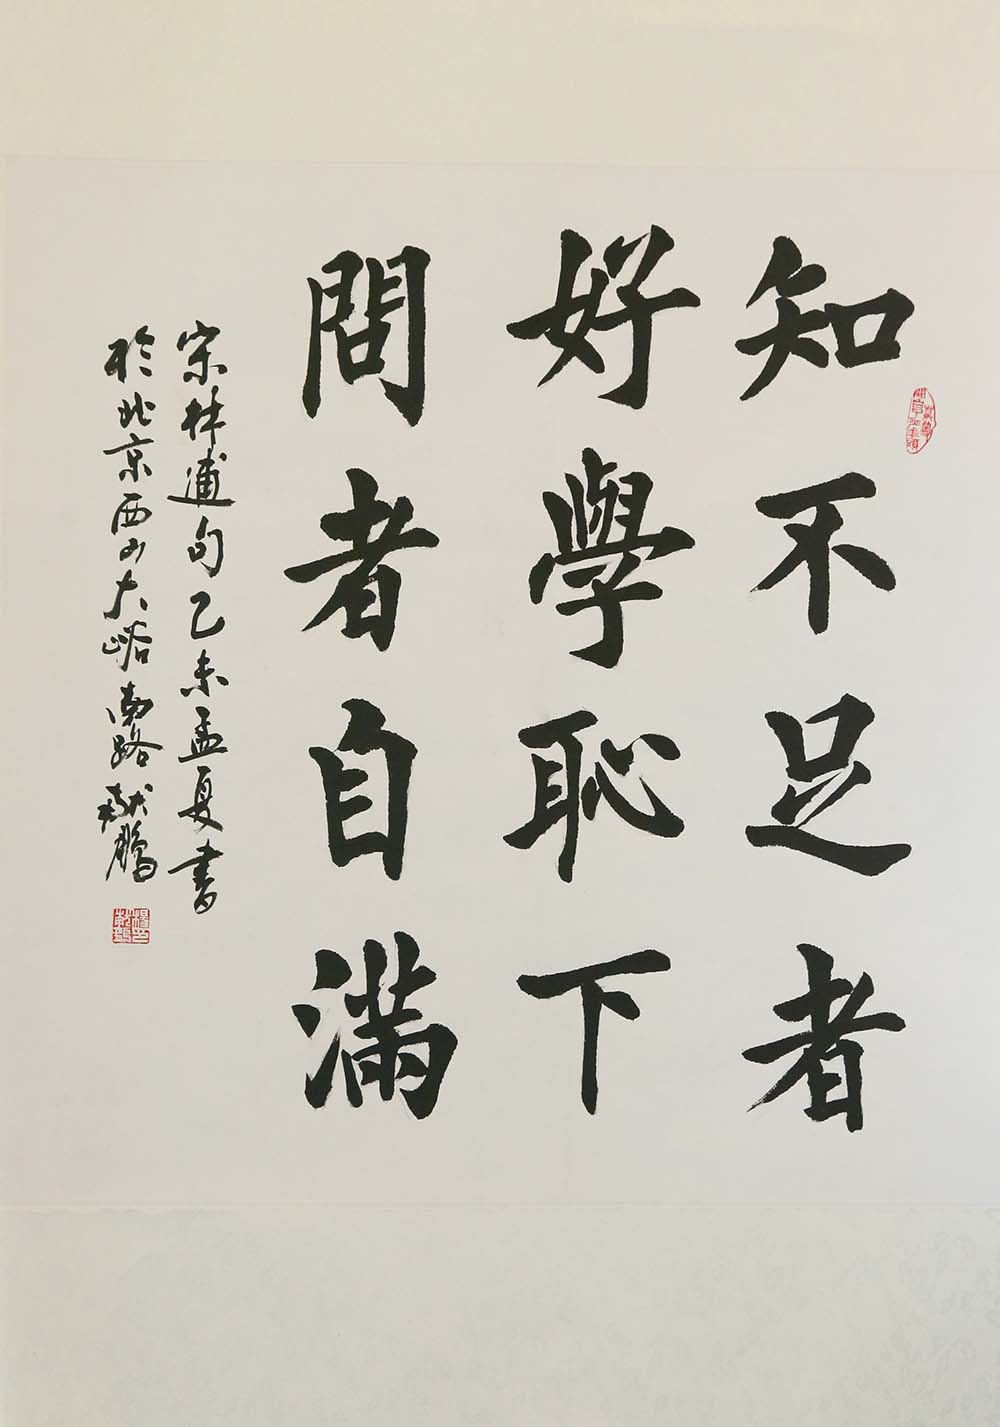 知不足者
好學恥下
問者自滿
宋林逋句乙未孟夏書
於北京西山大峪南路献鵬